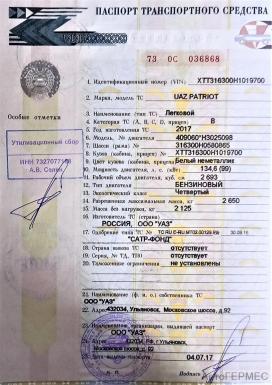 ПАСПОРТ ТРАНСПОРТНОГО СРЕДСТВА
73 ОС 036868
Особые отметки
1. Идентификационный номер (VIN) ХТТ316300Н1019700
2. Марка, модель ТС UAZ PATRIOT
3. Наименование (тип ТС) Легковой
4. Категория ТС (А, В, С, D, прицеп) В
5. Год изготовления ТС 2017
6. Модель, № двигателя 409060*Н3025098
7. Шасси (рама) № 316300Н0580865
8. Кузов (кабина, прицеп) № ХТТ316300Н1019700
9. Цвет кузова (кабины, прицепа) Белый неметаллик
10. Мощность двигателя, л. с. (кВт) 134,6 (99)
11. Рабочий объем двигателя, куб. см 2 693
12. Тип двигателя БЕНЗИНОВЫЙ
13. Экологический класс Четвертый
14. Разрешенная максимальная масса, кг 2 650
15. Масса без нагрузки, кг 2 125
16. Изготовитель ТС (страна)
РОССИЯ, ООО "УАЗ"
17. Одобрение типа ТС №
"САТР-ФОНД"
18. Страна вывоза ТС отсутствует
19. Серия, № ТД, ТПО отсутствует
20. Таможенные ограничения не установлены
21. Наименование (ф. и. о.) собственника ТС
ООО "УАЗ"
22. Адрес 432034, Ульяновск, Московское шоссе, д.92
23. Наименование организации, выдавшей паспорт
ООО "УАЗ"
24. Адрес 432034, РФ, г.Ульяновск,
Московское шоссе, д.92
25. Дата выдачи паспорта 04.07.17
М. П. Подпись
Утилизационный сбор
ИНН
А.В.
ГЕРМЕС